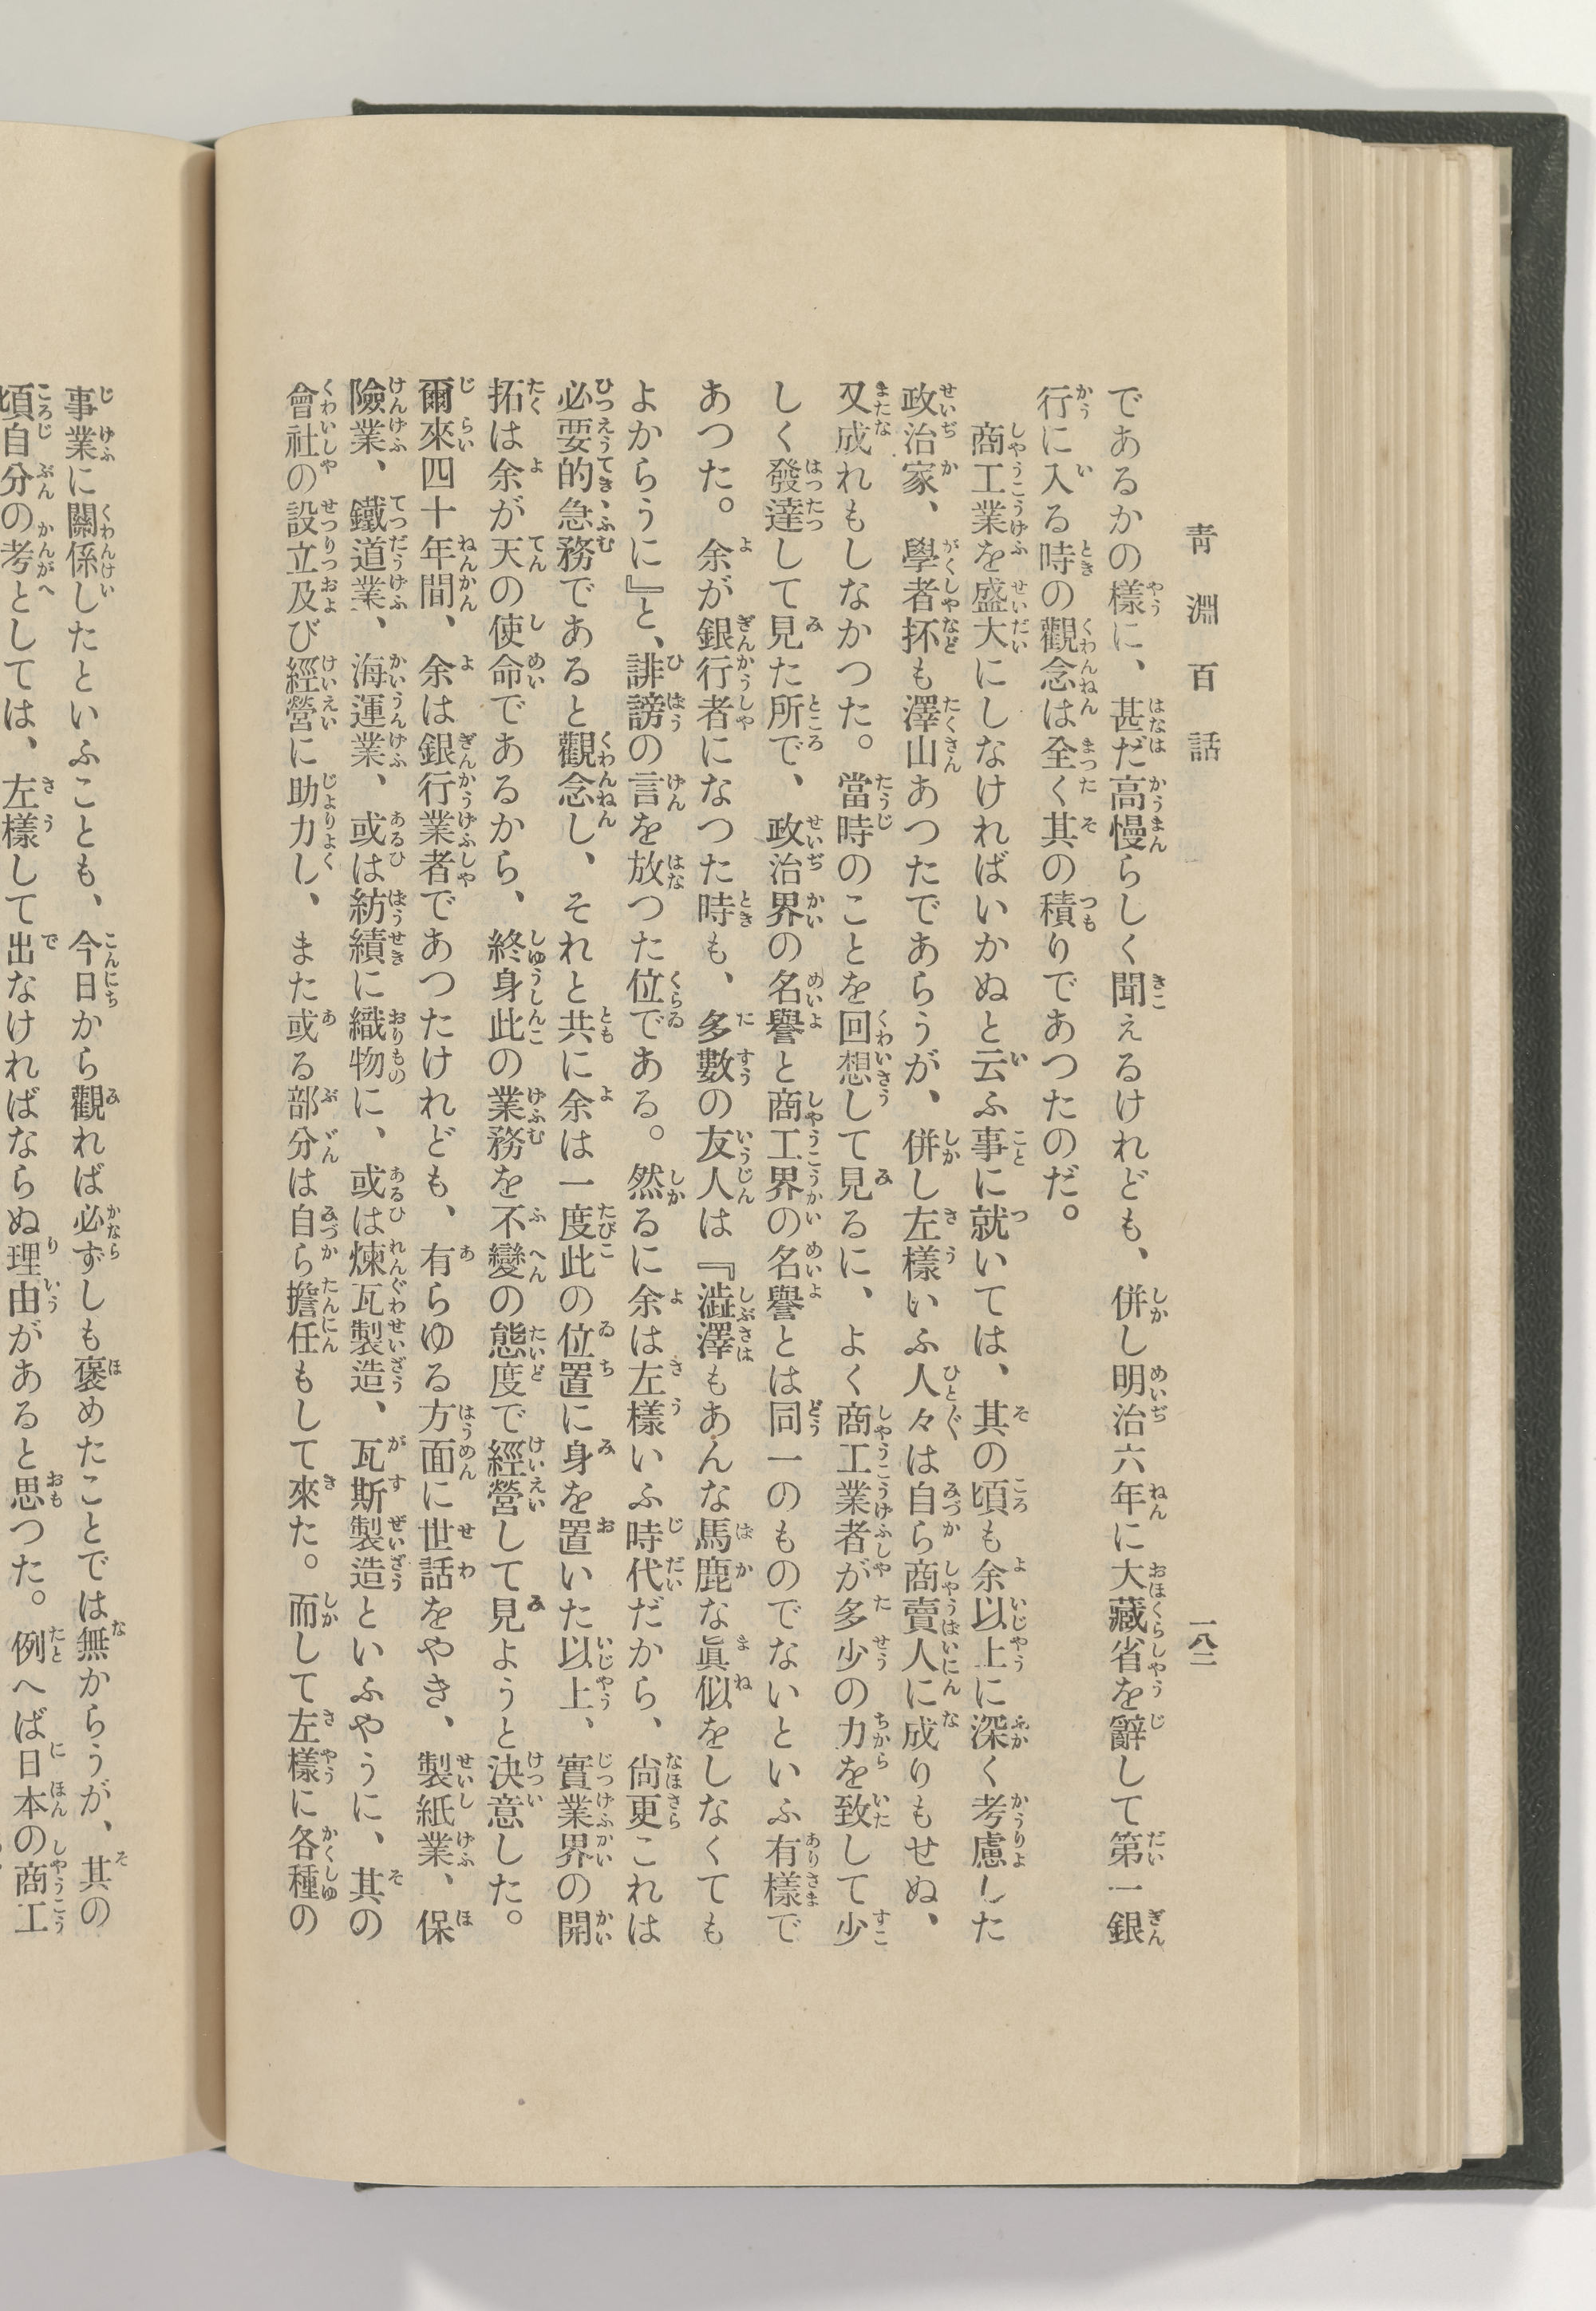 靑淵百話
一八二
であるかの樣に、甚だ高慢らしく聞えるけれども、併し明治六年に大藏省を辭して第一銀
行に入る時の觀念は全く其の積りであつたのだ。
商工業を盛大にしなければいかぬと云ふ事に就いては、其の頃も余以上に深く考慮した
政治家、學者抔も澤山あつたであらうが、併し左樣いふ人々は自ら商賣人に成りもせぬ、
又成れもしなかつた。當時のことを回想して見るに、よく商工業者が多少の力を致して少
しく發達して見た所で、政治界の名譽と商工界の名譽とは同一のものでないといふ有樣で
あつた。余が銀行者になつた時も、多數の友人は『澁澤もあんな馬鹿な眞似をしなくても
よからうに』と、誹謗の言を放つた位である。然るに余は左樣いふ時代だから、尙更これは
必要的急務であると觀念し、それと共に余は一度此の位置に身を置いた以上、實業界の開
拓は余が天の使命であるから、終身此の業務を不變の態度で經營して見ようと決意した。
爾來四十年間、余は銀行業者であつたけれども、有らゆる方面に世話をやき、製紙業、保
險業、鐵道業、海運業、或は紡績に織物に、或は煉瓦製造、瓦斯製造といふやうに、其の
會社の設立及び經營に助力し、また或る部分は自ら擔任もして來た。而して左樣に各種の
事業に關係したといふことも、今日から觀れば必ずしも褒めたことでは無からうが、其の
頃自分の考としては、左樣して出なければならぬ理由があると思つた。例へば日本の商工